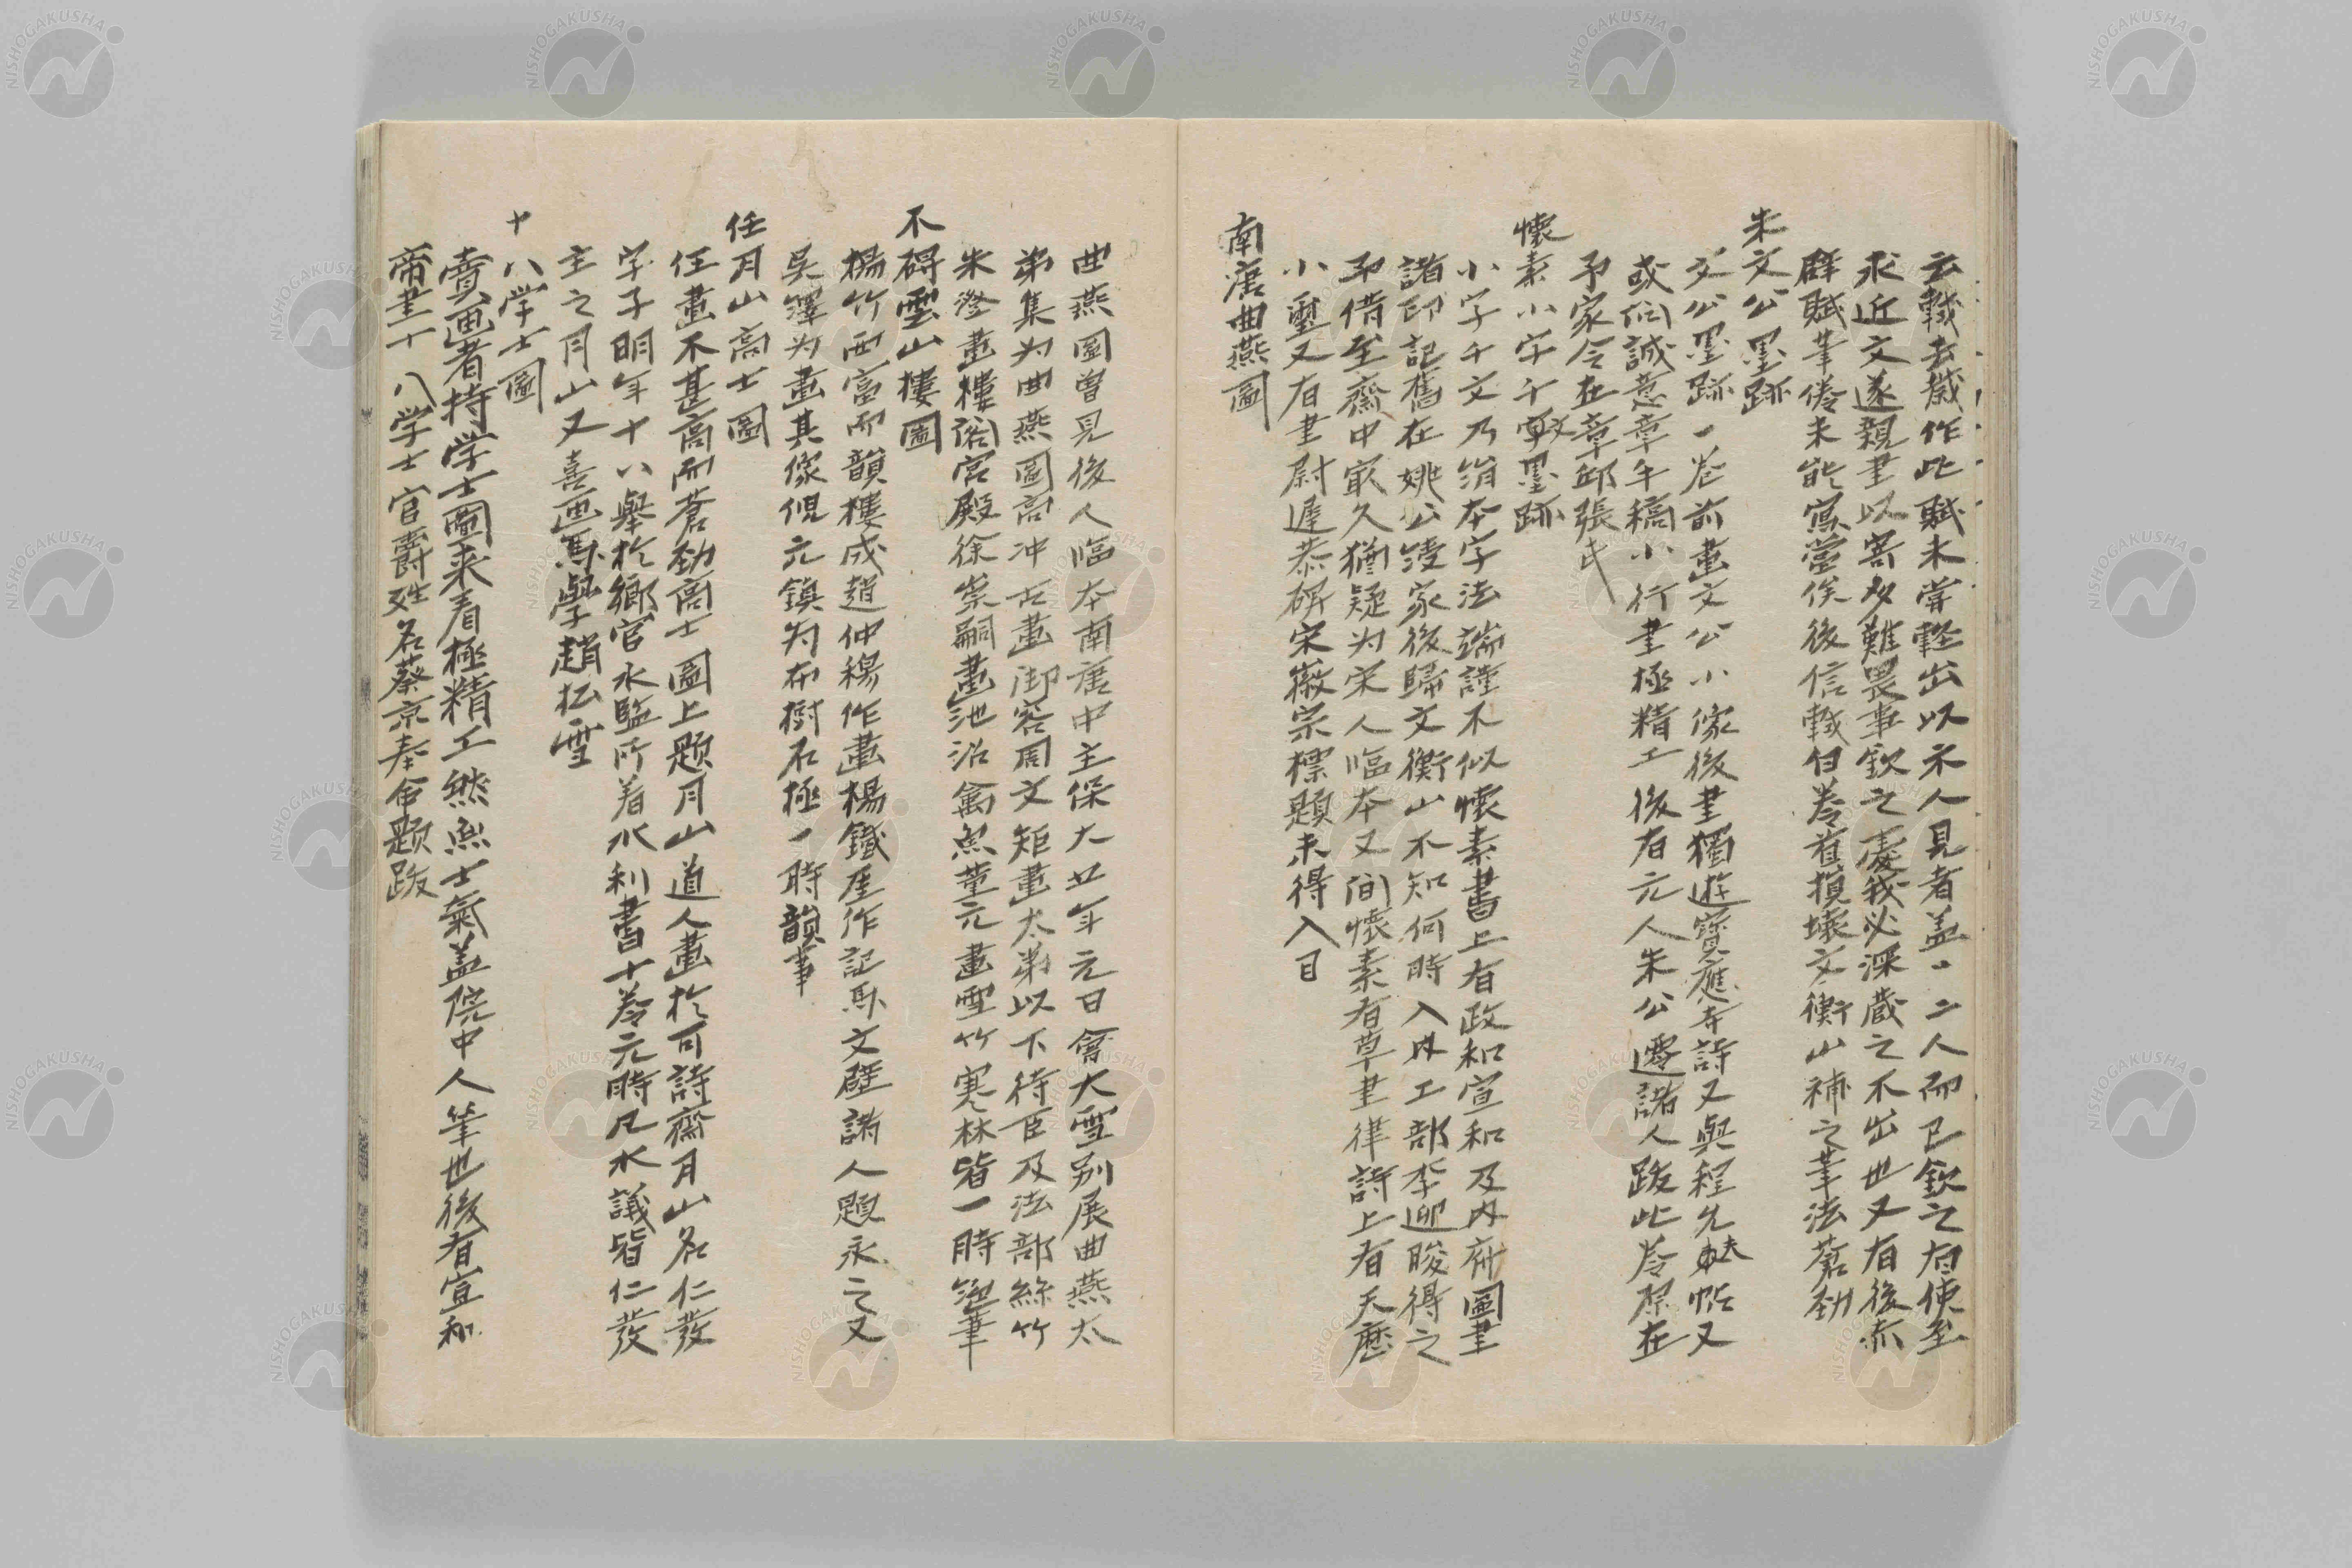 云軾去歲作此賦未嘗軽出以示人見者盖一二人而已欽之有使至
求近文遂親書以寄多難畏事欽之愛我必深蔵之不出也又有後赤
壁賦筆倦未能寫當俟後信軾白卷首損壞文衡山補之筆法蒼勁
朱文公墨跡
文公墨跡一卷前畫文公小像後書獨遊寶應寺詩又與程允夫帖又
或問誠意章手稿小行書極精工後有元人朱公遷諸人跋此卷原在
予家今在章邱張氏
懷素小字千文墨跡
小字千文乃絹本字法端謹不似懷素書上有政和宣和及内府圖書
諸印記舊在姚公綬家後歸文衡山不知何時入内工部李迎晙得之
予借至齋中寂久猶疑为宋人臨本又间懷素有草書律詩上有天歷
小璽又有書尉遲恭碑宋徽宗標題未得入目
南唐曲燕圖
曲燕圖曾見後人臨本南唐中主保大五年元日會大雪别展曲燕太
弟集为曲燕圖高冲古畫御容周文矩畫太弟以下待臣及法部絲竹
朱澄畫樓閣宮殿徐崇嗣畫池沼禽魚董元畫雪竹寒林皆一時絕筆
不碍雲山樓圖
楊竹西富而韻樓成趙仲穆作畫楊鐵厓作記馬文璧諸人題永之又
吳繹为畫其像倪元鎮为布樹石極一時韻事
任月山高士圖
任畫不甚高而蒼勁高士圖上题月山道人畫於可詩齋月山名仁發
字子明年十八舉於鄉官水監所着水利書十卷元時凡水議皆仁發
主之月山又喜画馬學趙松雪
十八学士圖
賣画者持学士圖来看極精工然無士氣盖院中人筆也後有宣和
帝書十八学士官爵姓名蔡京奉命题跋